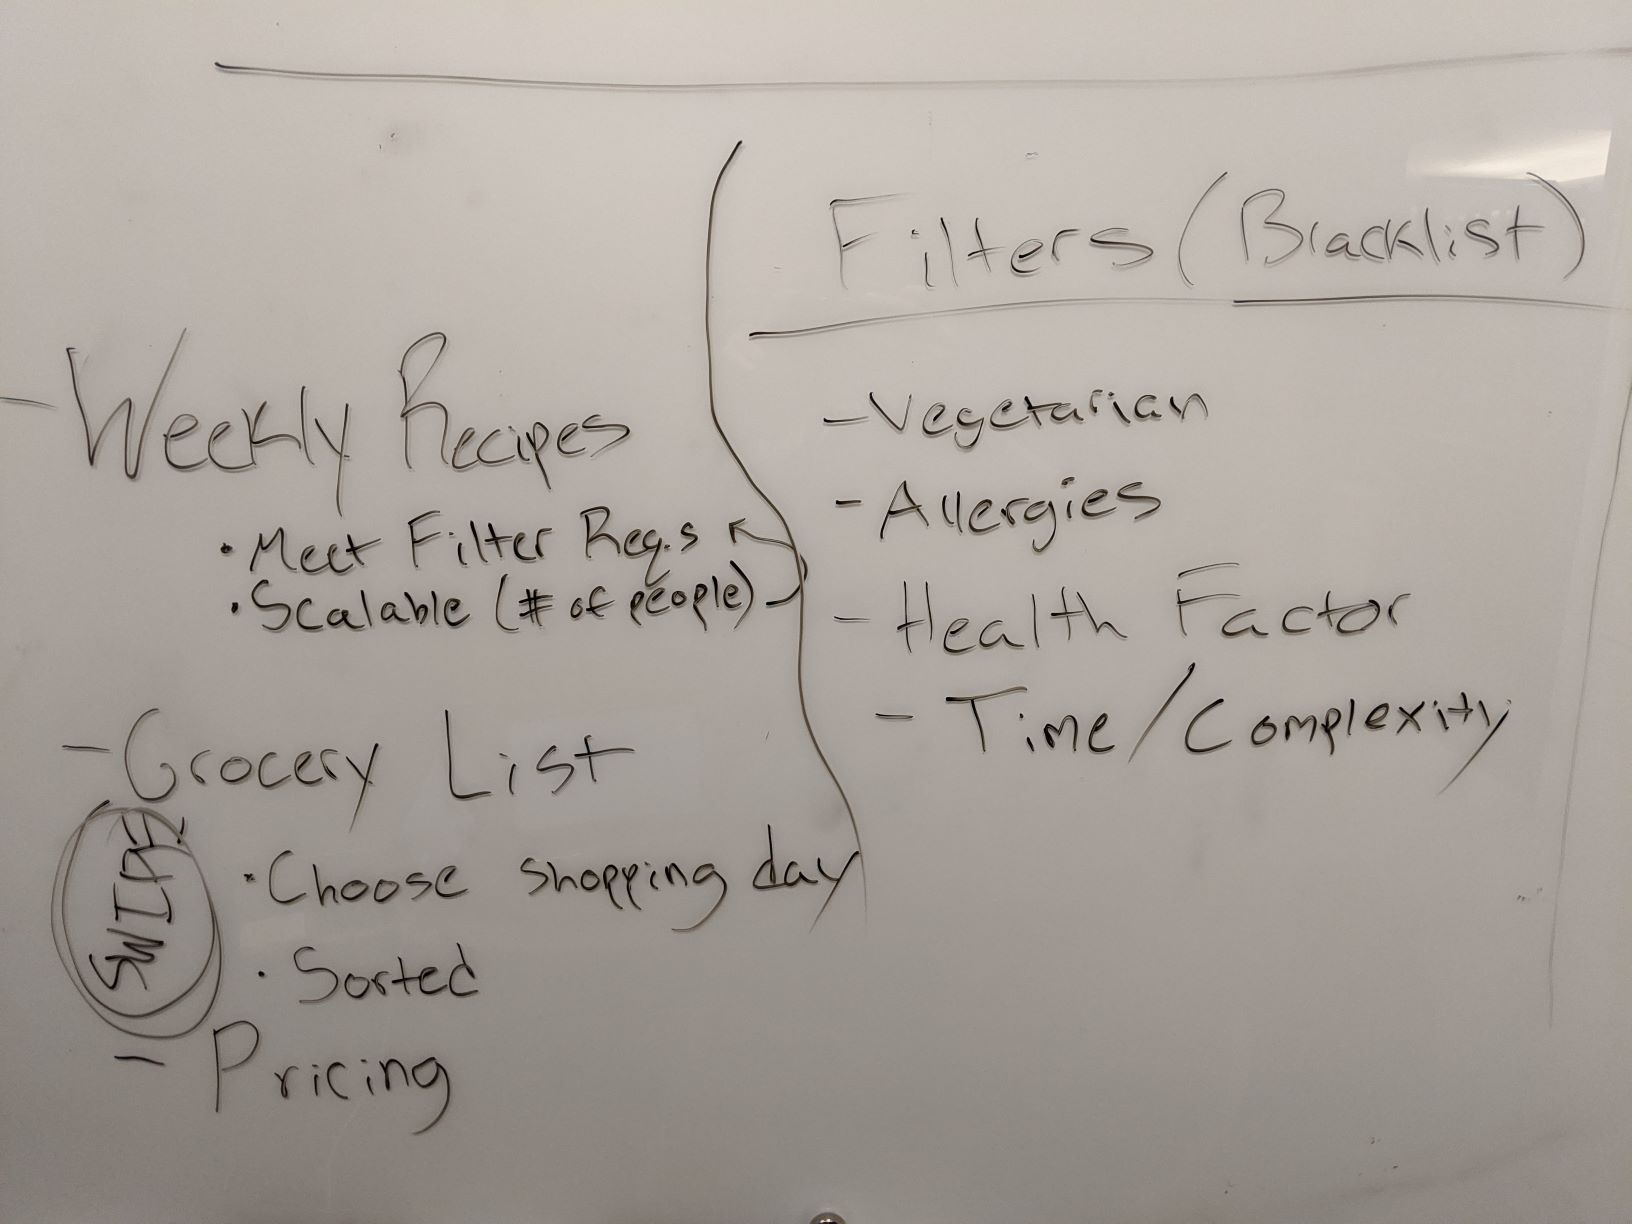 - Weekly Recipes
• Meet Filter Req.s
• Scalable (# of people)
- Grocery List
SWIPE
• Choose shopping day
• Sorted
- Pricing
Filters (Blacklist)
- Vegetarian
- Allergies
- Health Factor
- Time/Complexity